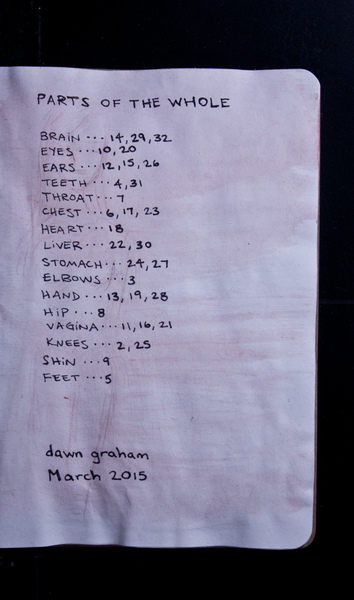 PARTS OF THE WHOLE
BRAIN ··· 14, 29, 32
EYES ··· 10, 20
EARS ··· 12, 15, 26
TEETH ··· 4, 31
THROAT ··· 7
CHEST ··· 6, 17, 23
HEART ··· 18
LIVER ··· 22, 30
STOMACH ··· 24, 27
ELBOWS ··· 3
HAND ··· 13, 19, 28
HIP ··· 8
VAGINA ··· 11, 16, 21
KNEES ··· 2, 25
SHIN ··· 9
FEET ··· 5
dawn graham
March 2015